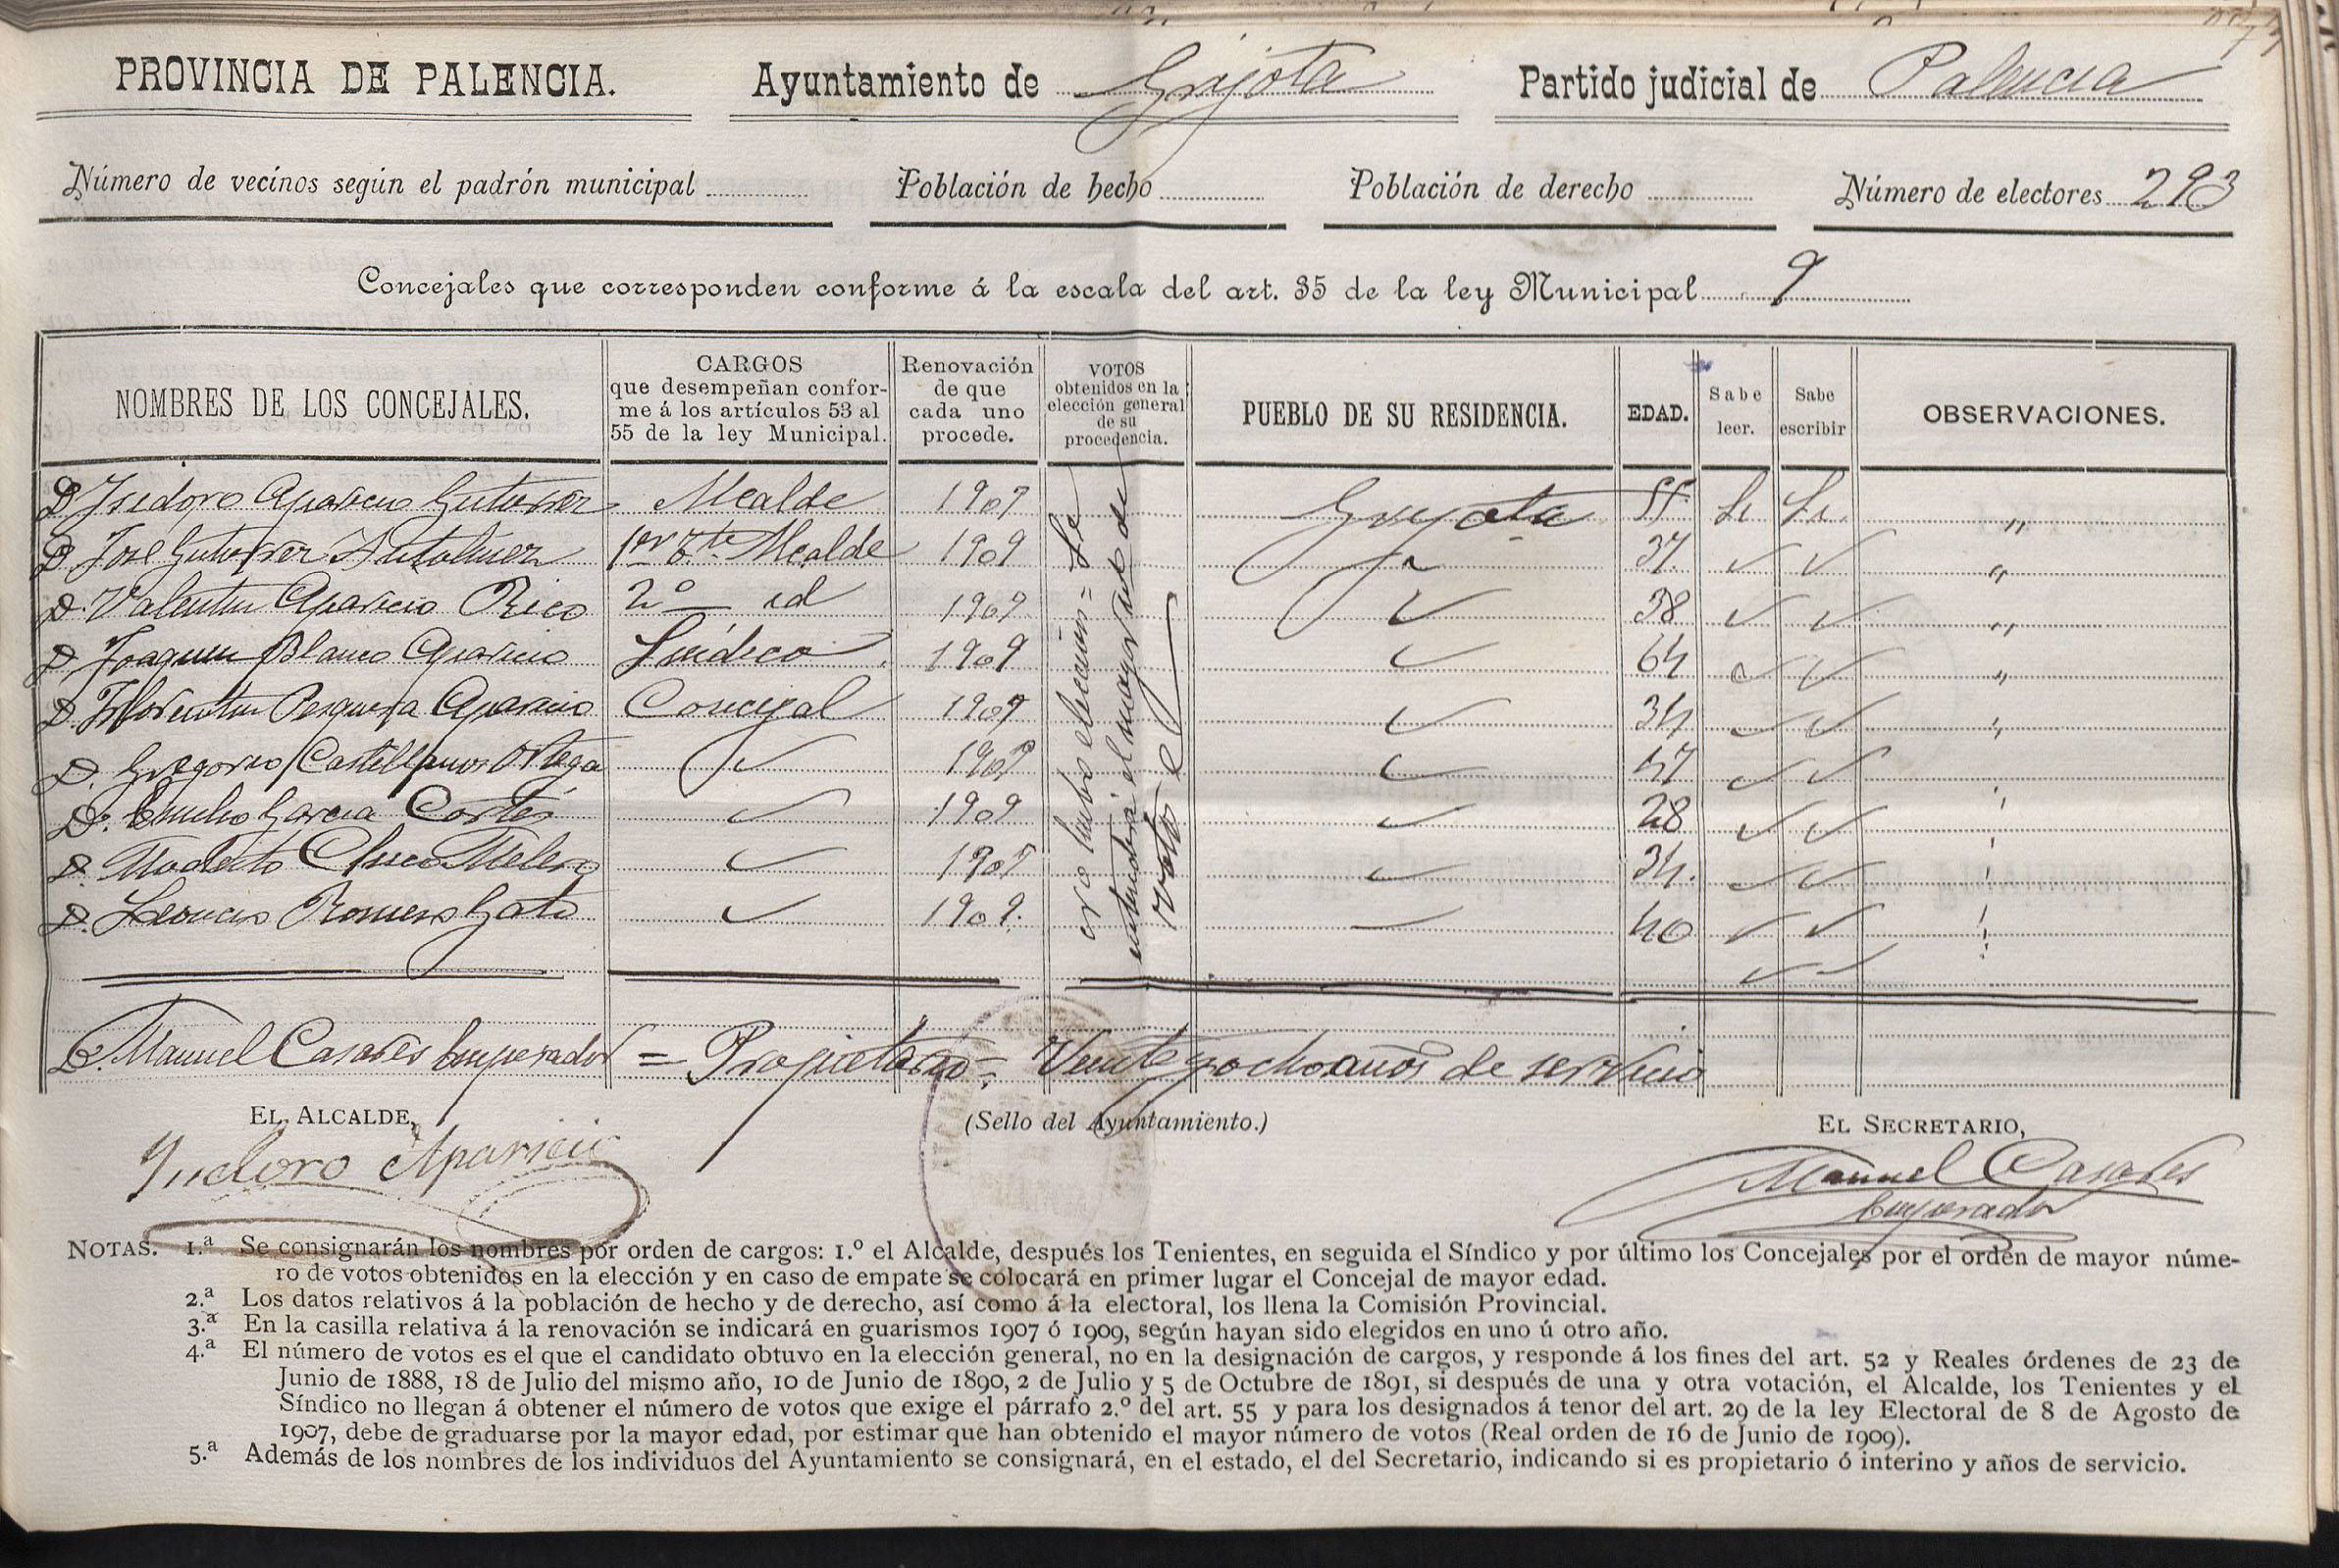 PROVINCIA DE PALENCIA. Ayuntamiento de Grijota Partido judicial de Palencia
Número de vecinos según el padrón municipal Población de hecho Población de derecho Número de electores 293
Concejales que corresponden conforme á la escala del art. 35 de la ley Municipal 9
NOMBRES DE LOS CONCEJALES.
CARGOS
que desempeñan confor-
me á los artículos 53 al
55 de la ley Municipal.
Renovación
de que
cada uno
procede.
VOTOS
obtenidos en la
elección general
de su
procedencia.
PUEBLO DE SU RESIDENCIA.
EDAD.
Sabe
leer.
Sabe
escribir
OBSERVACIONES.
D Isidoro Aparicio Gutierrez Alcalde 1909 Grijota 55 Si Si "
D José Gutierrez 1er Tte Alcalde 1909 37 ✓ ✓ "
D. Valentin Aparicio Rico 2º id 1909 ✓ 38 ✓ ✓ "
D Joaquin Blanco Aparicio Síndico 1909 ✓ 64 ✓ ✓ "
D. Florentin Pesquera Aparicio Concejal 1909 ✓ 34 ✓ ✓ "
D. Gregorio Castellanos Ortega ✓ 1909 ✓ 47 ✓ ✓
D. Emilio Garcia Cortés ✓ 1909 ✓ 28 ✓ ✓
D. Modesto Melero ✓ 1909 ✓ 34. ✓ ✓
D. Leoncio Romero Gato ✓ 1909. 40 ✓ ✓
no hubo eleccion =
el mayor de
votos
D. Manuel Casares Emperador = Propietario = Veinte y ocho años de servicio
EL ALCALDE, (Sello del Ayuntamiento.) EL SECRETARIO,
Isidoro Aparicio Manuel Casares
Emperador
NOTAS. 1.ª Se consignarán los nombres por orden de cargos: 1.º el Alcalde, después los Tenientes, en seguida el Síndico y por último los Concejales por el orden de mayor núme-
ro de votos obtenidos en la elección y en caso de empate se colocará en primer lugar el Concejal de mayor edad.
2.ª Los datos relativos á la población de hecho y de derecho, así como á la electoral, los llena la Comisión Provincial.
3.ª En la casilla relativa á la renovación se indicará en guarismos 1907 ó 1909, según hayan sido elegidos en uno ú otro año.
4.ª El número de votos es el que el candidato obtuvo en la elección general, no en la designación de cargos, y responde á los fines del art. 52 y Reales órdenes de 23 de
Junio de 1888, 18 de Julio del mismo año, 10 de Junio de 1890, 2 de Julio y 5 de Octubre de 1891, si después de una y otra votación, el Alcalde, los Tenientes y el
Síndico no llegan á obtener el número de votos que exige el párrafo 2.º del art. 55 y para los designados á tenor del art. 29 de la ley Electoral de 8 de Agosto de
1907, debe de graduarse por la mayor edad, por estimar que han obtenido el mayor número de votos (Real orden de 16 de Junio de 1909).
5.ª Además de los nombres de los individuos del Ayuntamiento se consignará, en el estado, el del Secretario, indicando si es propietario ó interino y años de servicio.